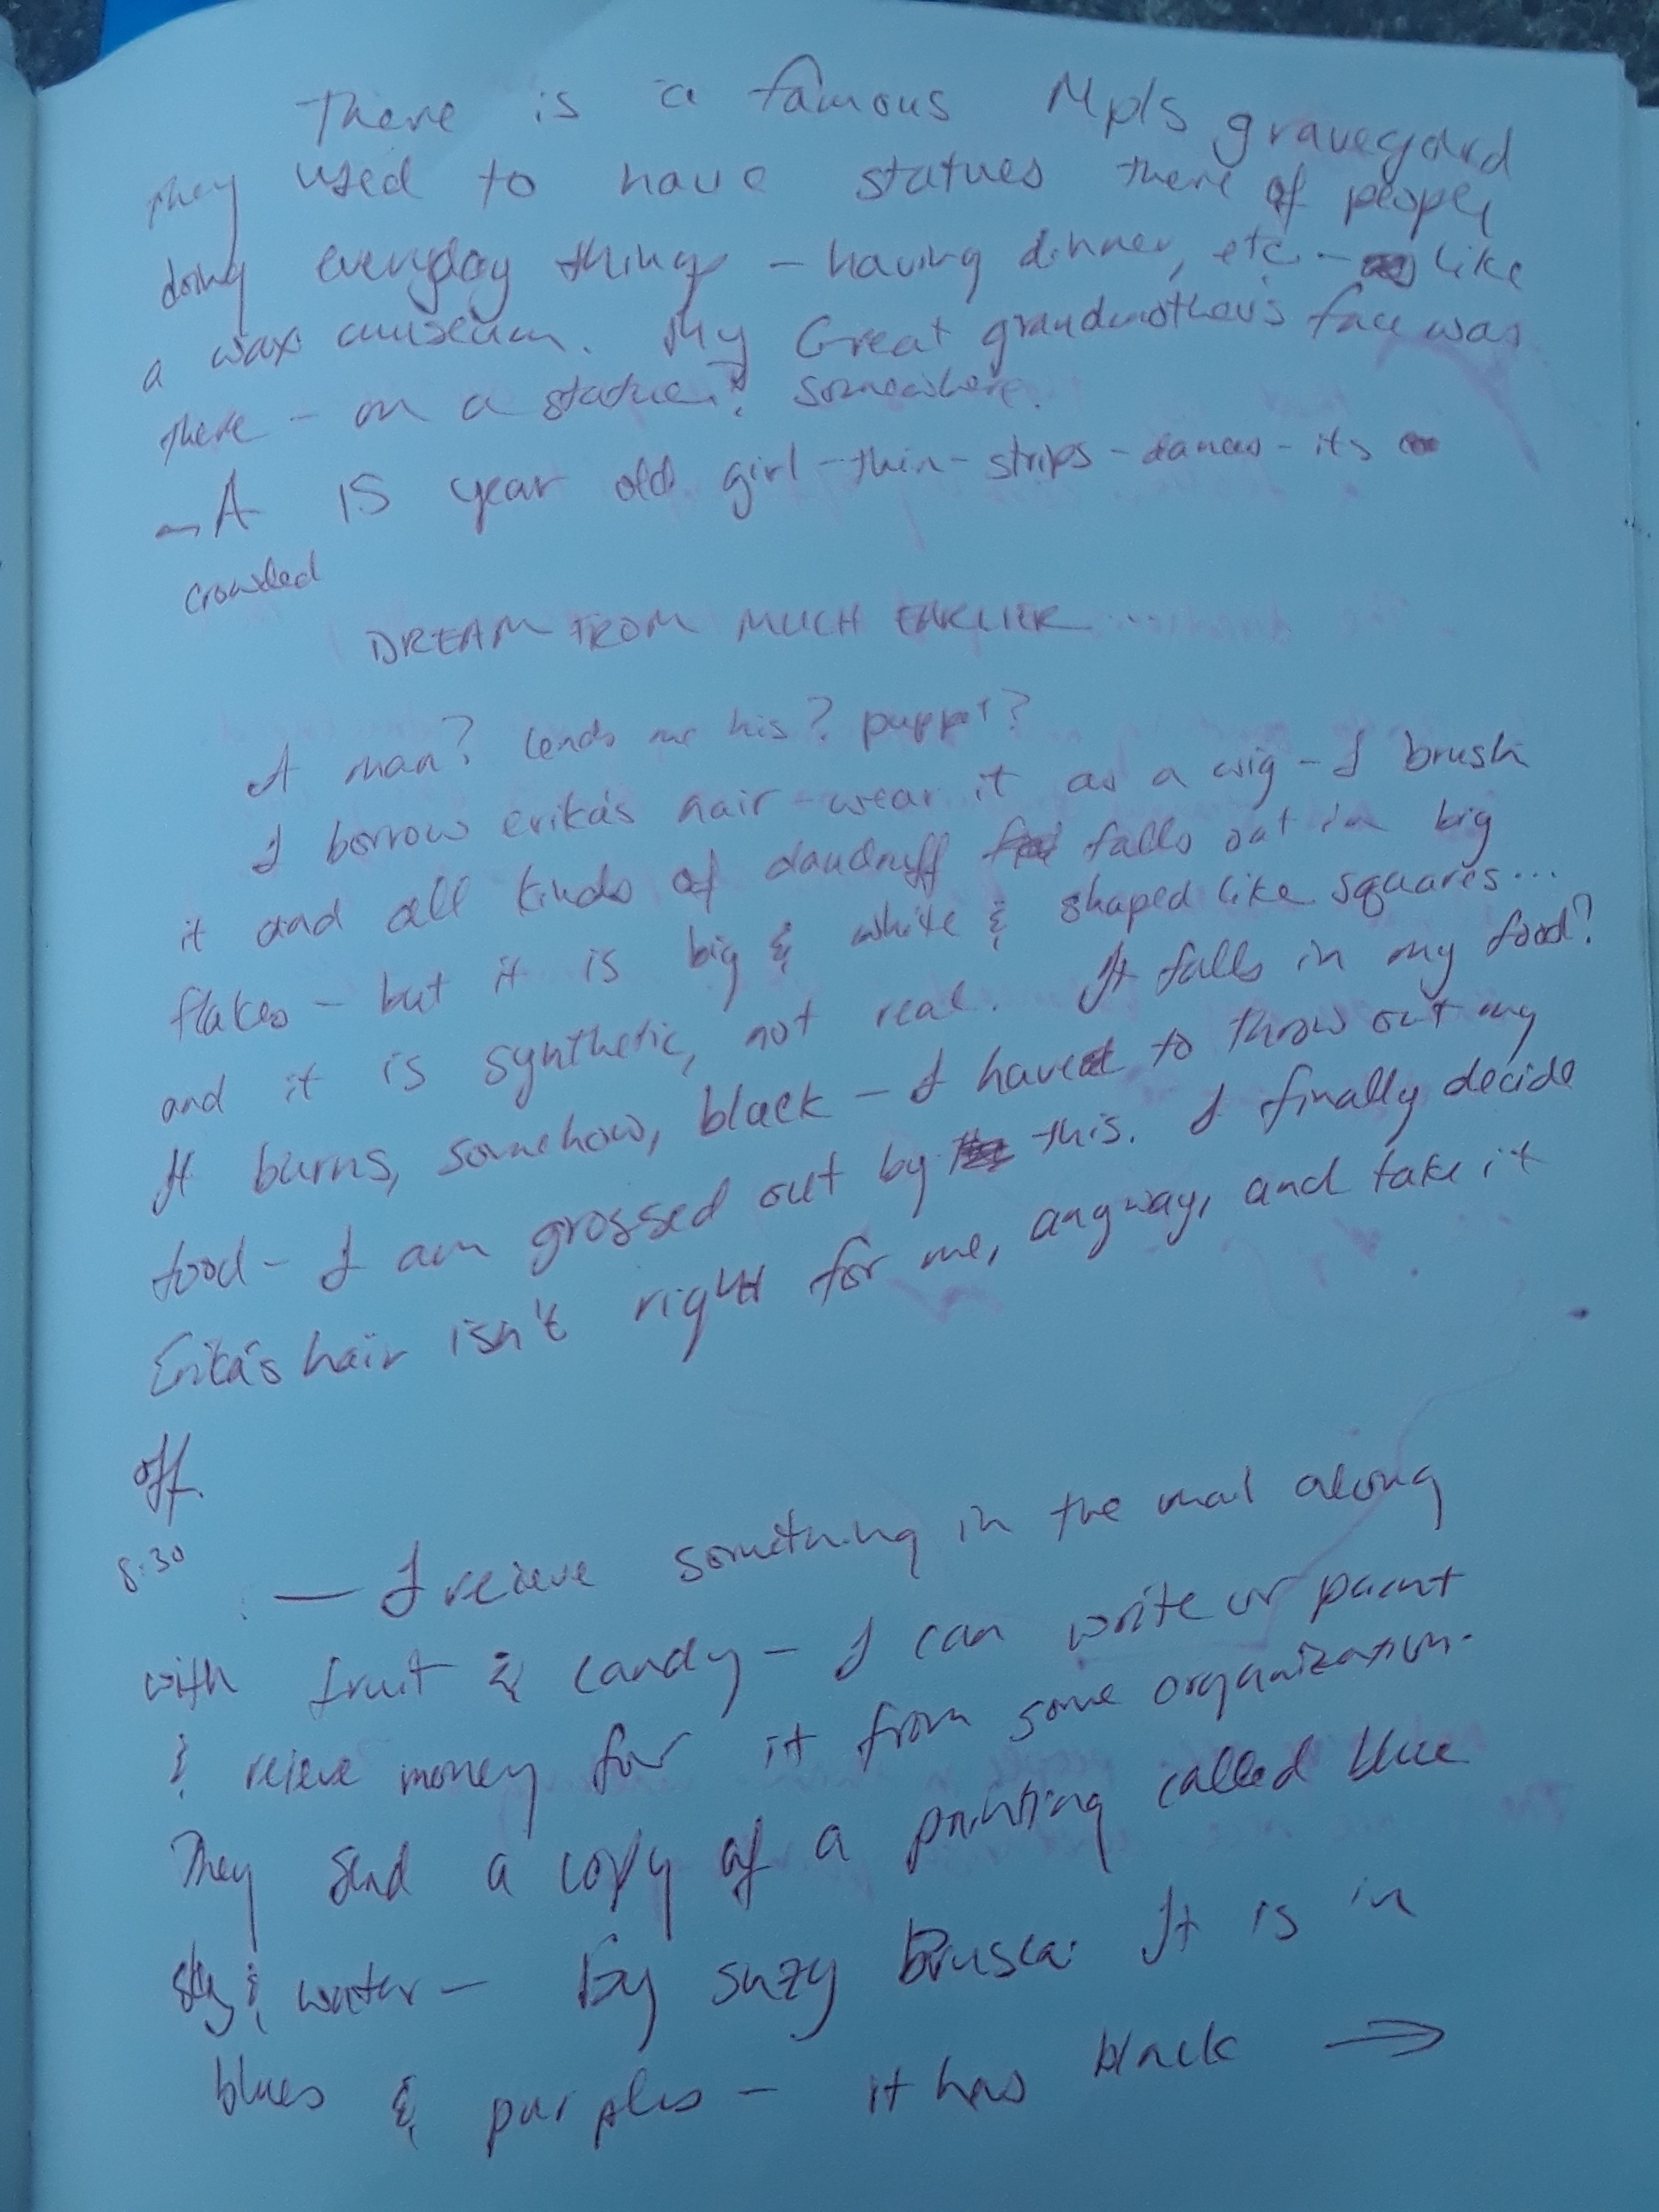 There is a famous Mpls graveyard
they used to have statues there of people
doing everyday things – having dinner, etc. – like
a wax museum. My Great grandmother's face was
there – on a statue? somewhere.
– A 15 year old girl – thin – strips – dances – its
crowded
DREAM FROM MUCH EARLIER...
A man? lends me his? puppet?
I borrow erika's hair – wear it as a wig – I brush
it and all kinds of dandruff falls out in big
flakes – but it is big & white & shaped like squares...
and it is synthetic, not real. It falls in my food?
It burns, somehow, black – I have to throw out my
food – I am grossed out by this. I finally decide
Erika's hair isn't right for me, anyway, and take it
off.
8:30
— I recieve something in the mail along
with fruit & candy – I can write or paint
& recieve money for it from some organization.
They send a copy of a painting called blue
sky & water – by suzy Brusca. It is in
blues & purples – it has black →